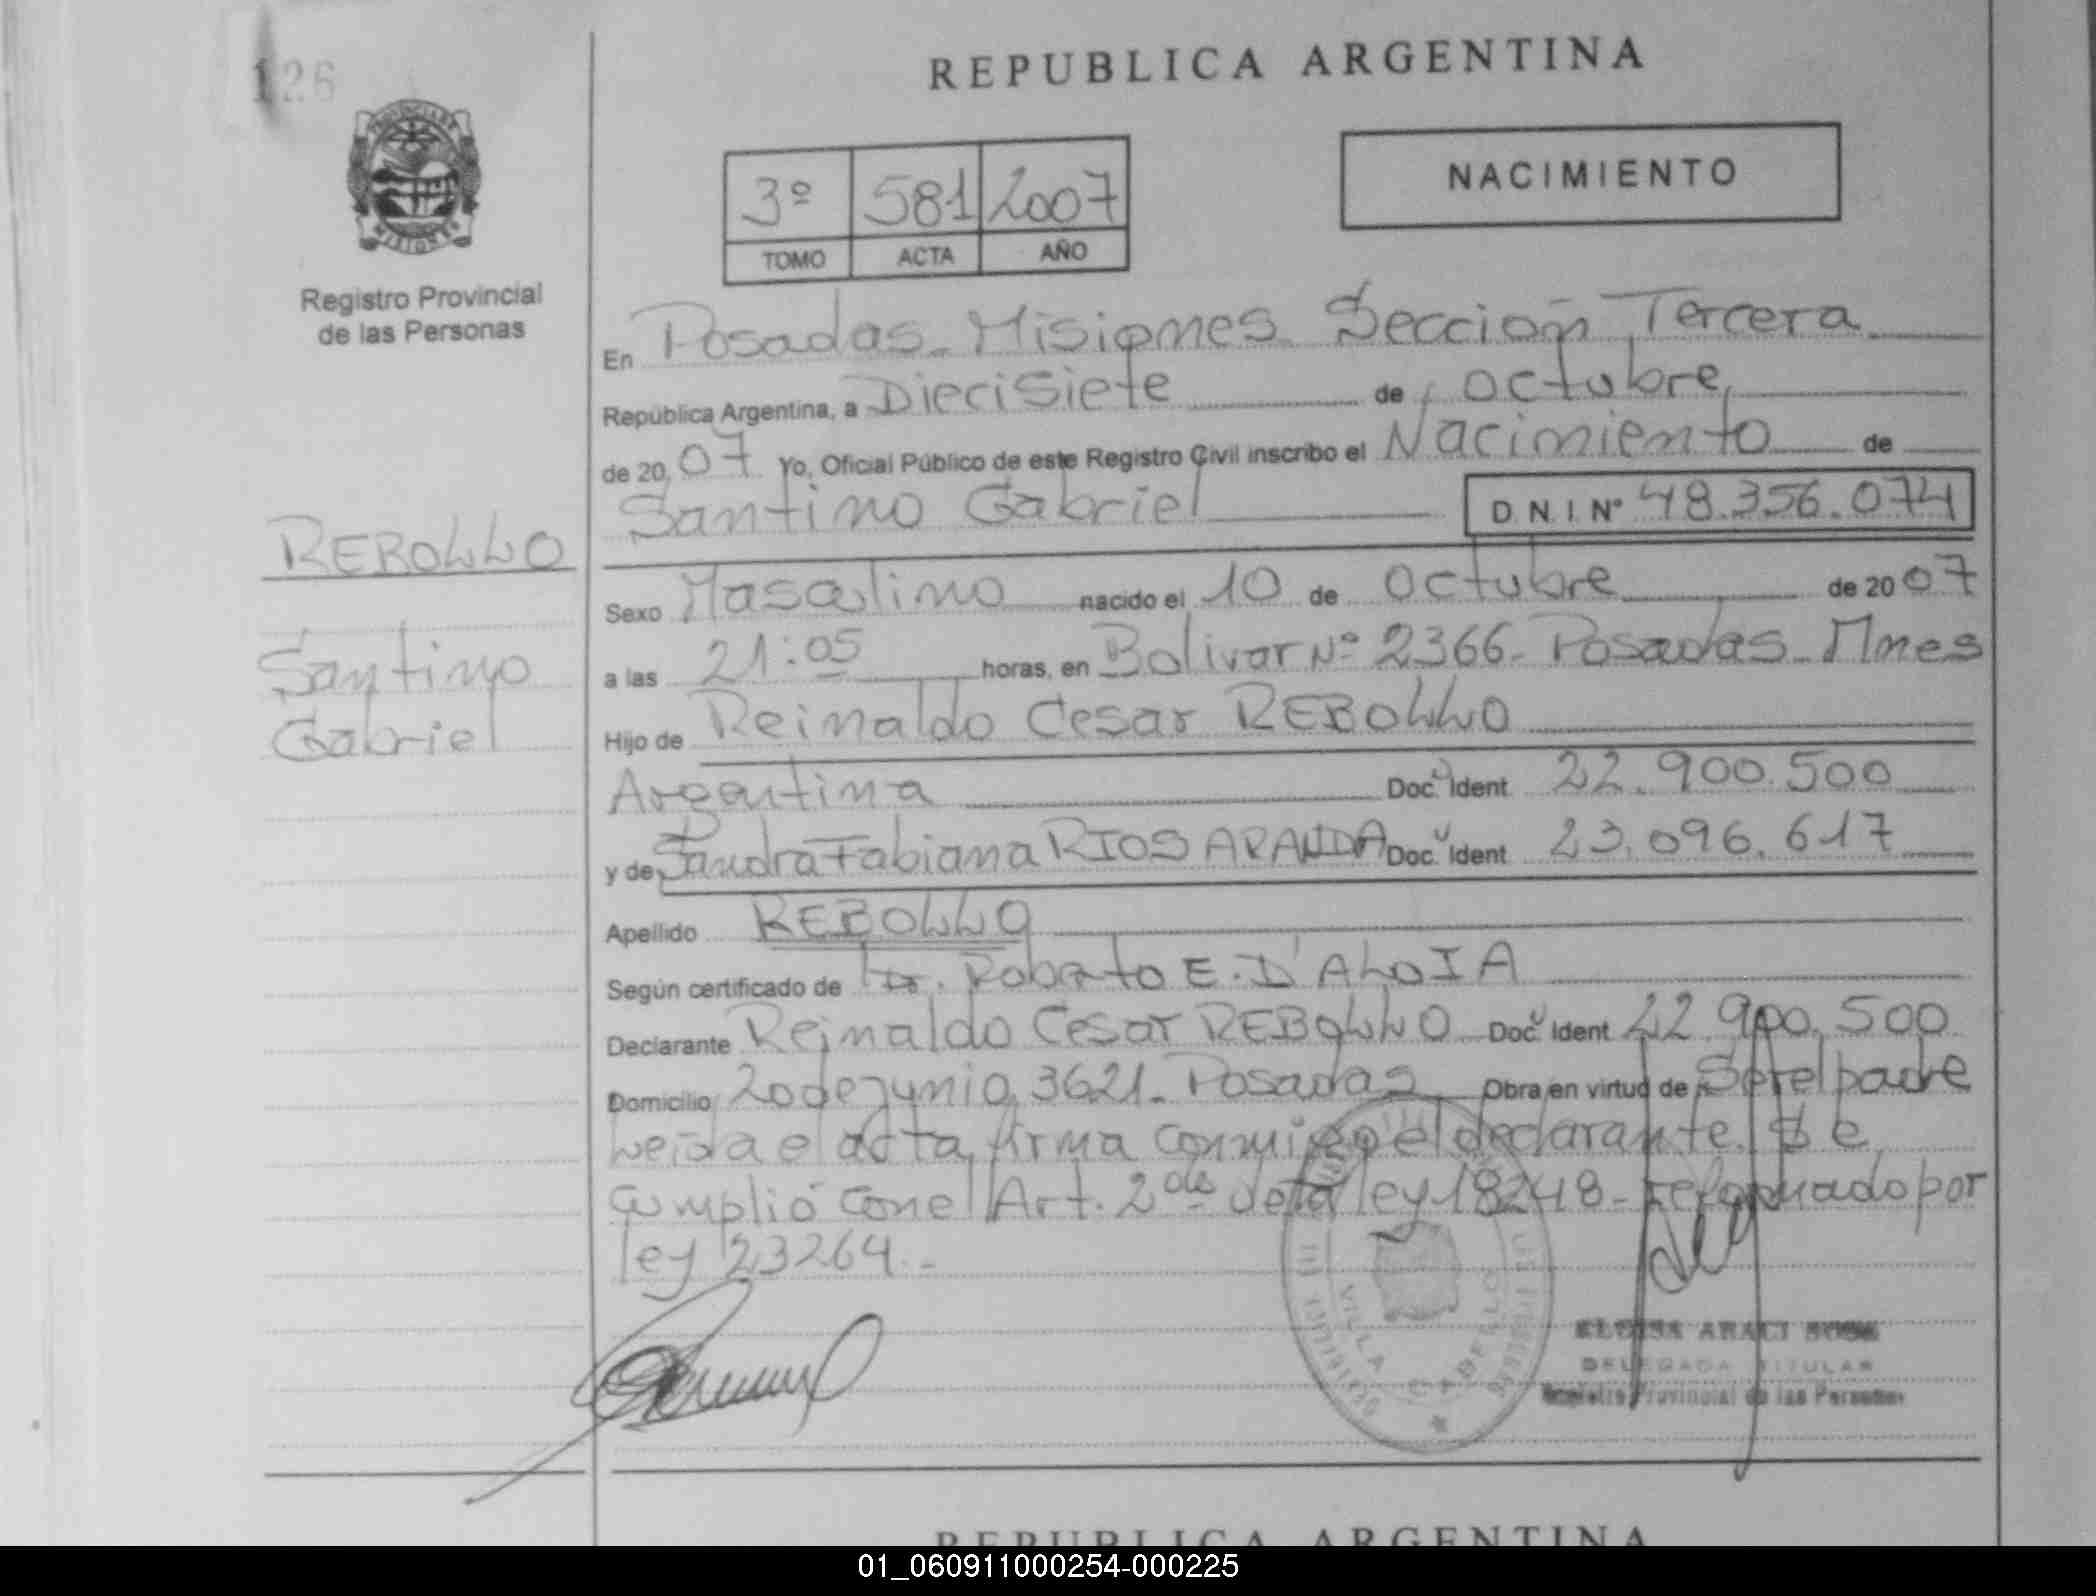 126
REPUBLICA ARGENTINA
PROVINCIA DE
MISIONES
Registro Provincial
de las Personas
3º 581 2007
TOMO ACTA AÑO
NACIMIENTO
En Posadas - Misiones Sección Tercera
República Argentina, a Diecisiete de octubre
de 2007 Yo, Oficial Público de este Registro Civil inscribo el Nacimiento de
Santino Gabriel D.N.I. Nº 48.356.074
REBOLLO
Santino
Gabriel
Sexo Masculino nacido el 10 de octubre de 2007
a las 21:05 horas, en Bolivar Nº 2366 - Posadas - Mnes
Hijo de Reinaldo Cesar REBOLLO
Argentina Doc. Ident 22.900.500
y de Sandra Fabiana RIOS ARANDA Doc. Ident 23.096.617
Apellido REBOLLO
Según certificado de Dr. Roberto E. D'ALOIA
Declarante Reinaldo Cesar REBOLLO Doc. Ident 22.900.500
Domicilio 20 de junio 3621 - Posadas Obra en virtud de Ser el padre
Leida el acta, firma conmigo el declarante. Se
cumplió con el Art. 2 de la ley 18248 - reformado por
ley 23264.-
VILLA CABELLO
ELOISA ARACI SOSA
DELEGADA TITULAR
Registro Provincial de las Personas
REPUBLICA ARGENTINA
01_060911000254-000225